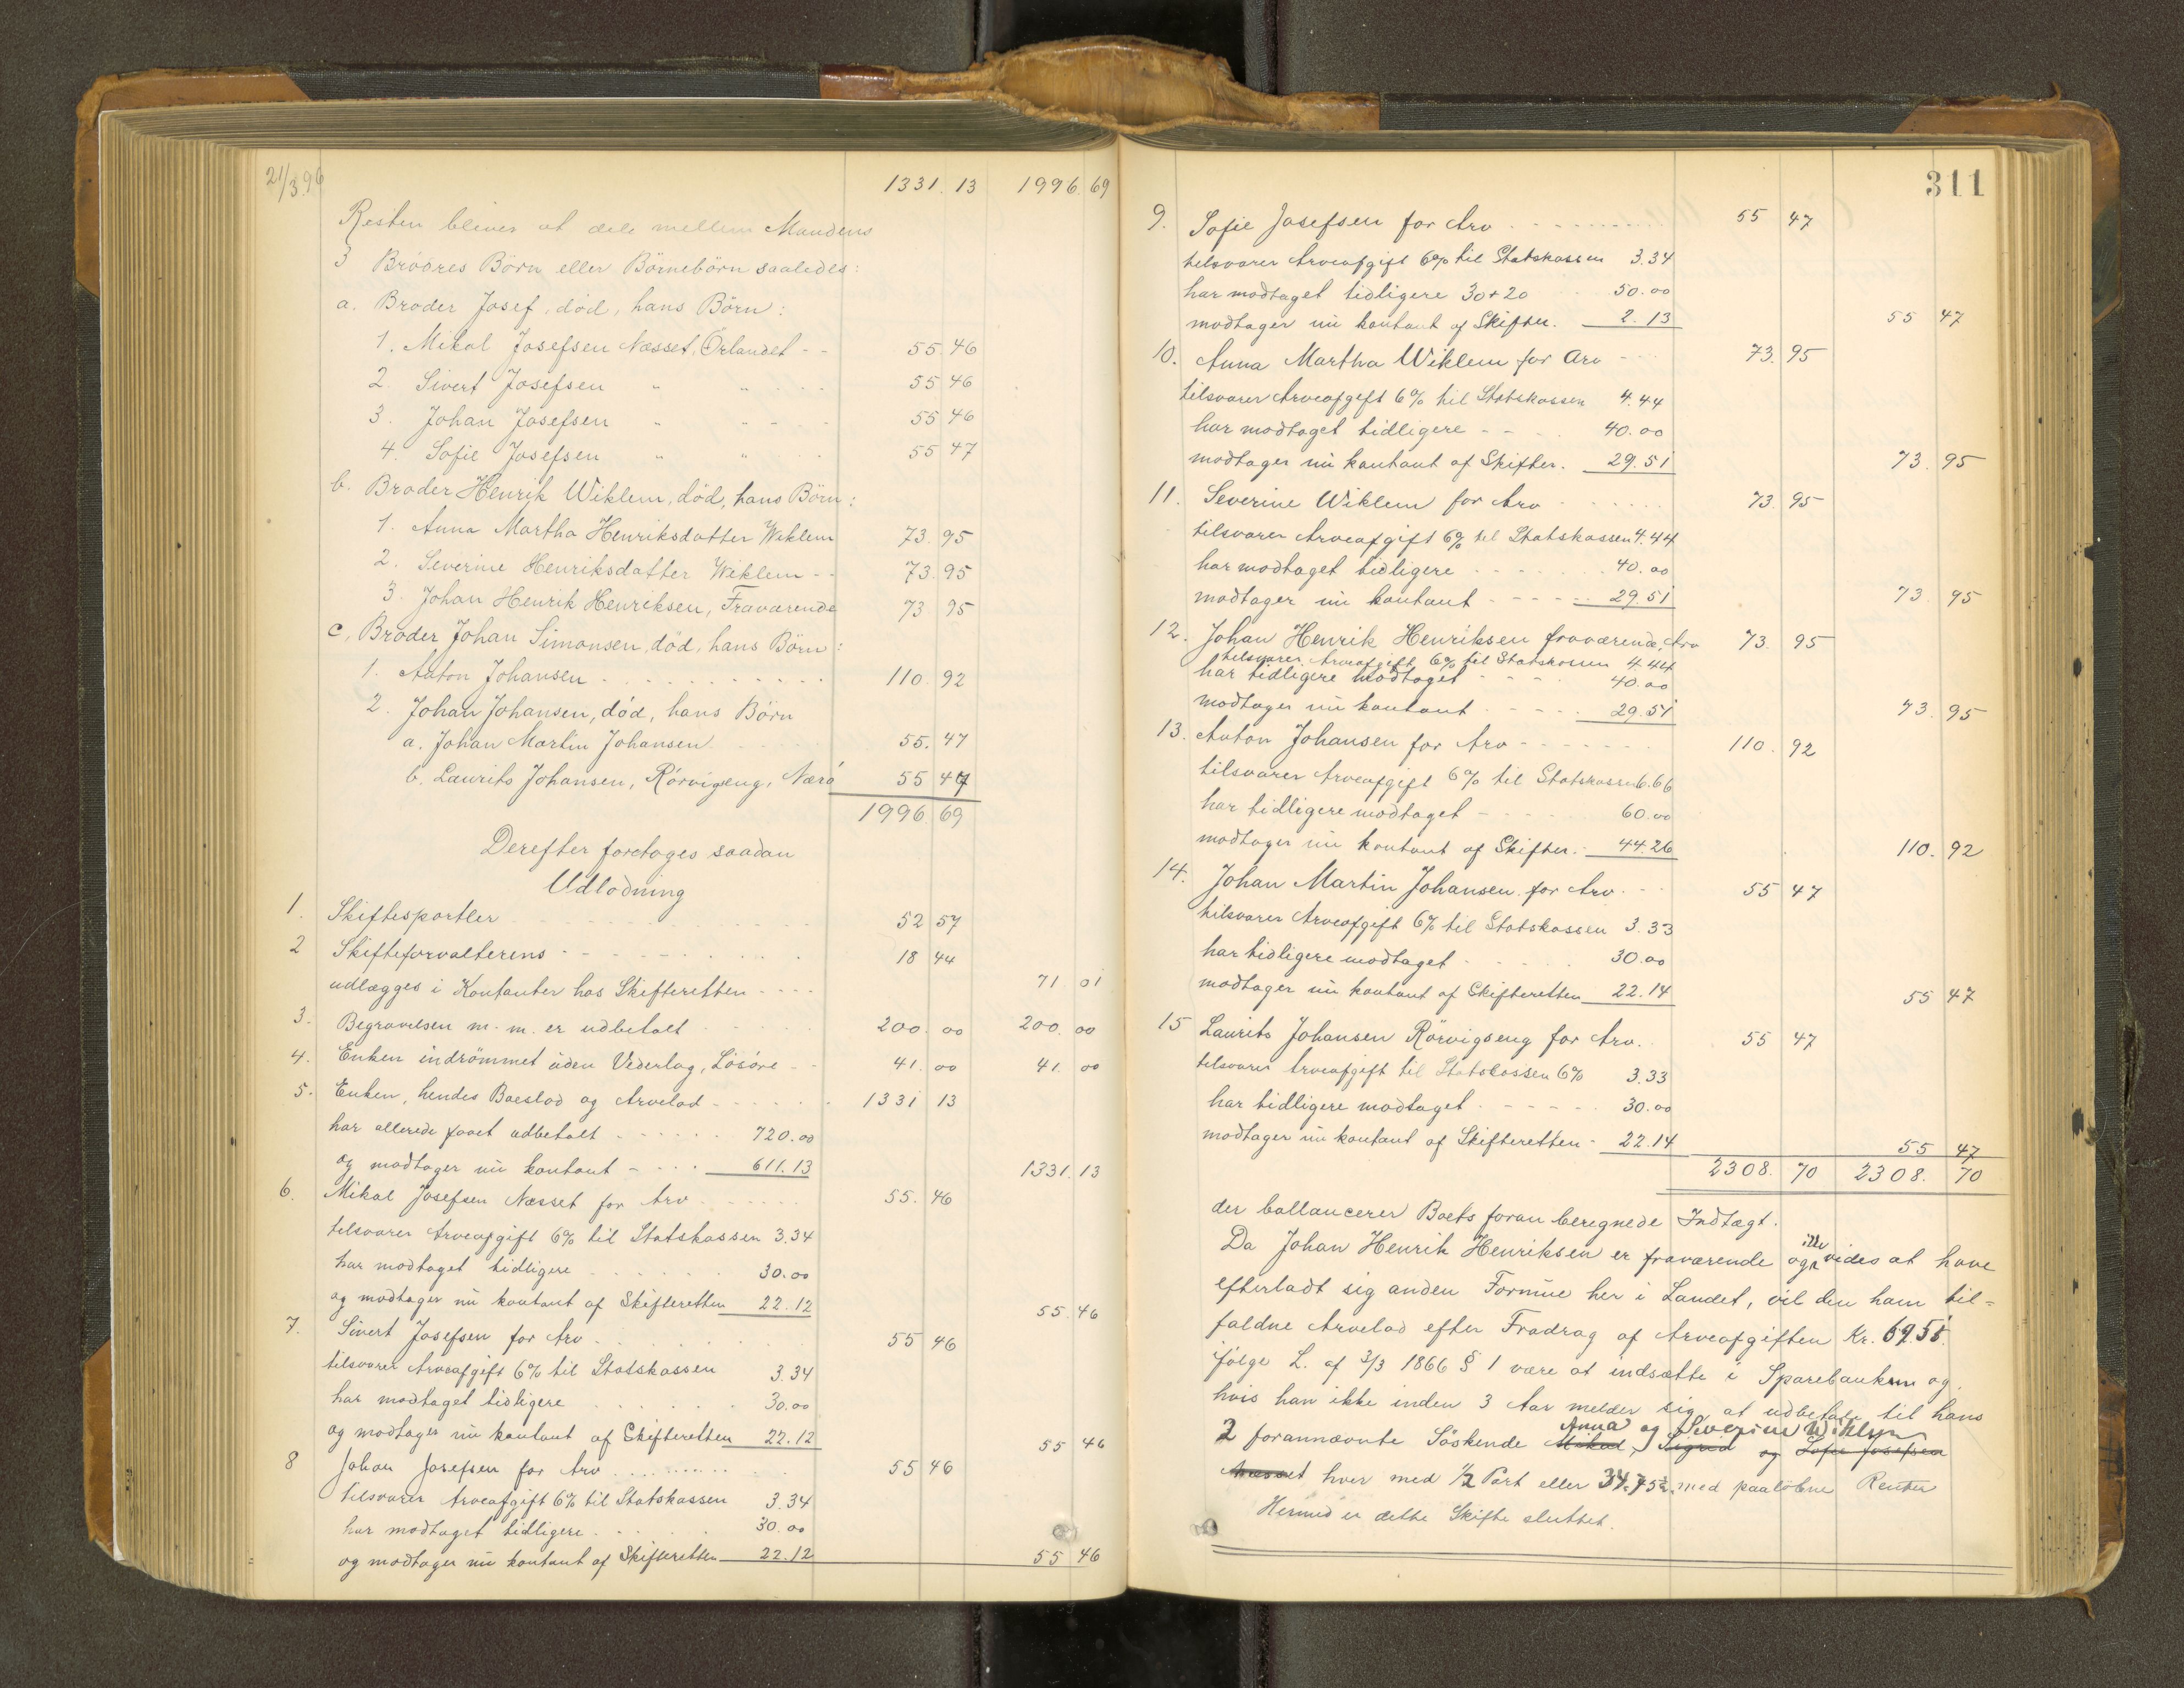 21/3.96 1331. 13 1996. 69
Resten bliver at dele mellem Mandens
3 Brödres Börn eller Börnebörn saaledes:
a. Broder Josef, död, hans Börn:
1. Mikal Josefsen Næsset, Örlandet - - 55.46
2. Sivert Josefsen " " - - - 55 46
3. Johan Josefsen " " - - - 55 46
4. Sofie Josefsen " " - - 55 47
b. Broder Henrik Wiklem, död, hans Börn:
1. Anna Martha Henriksdatter Wiklem 73. 95
2. Severine Henriksdatter Wiklem - - 73. 95
3. Johan Henrik Henriksen, Fraværende 73 95
c. Broder Johan Simonsen, död, hans Börn:
1. Anton Johansen - - - - - - - - - 110. 92
2. Johan Johansen, död, hans Börn
a. Johan Martin Johansen - - - 55. 47
b. Laurits Johansen, Rörvigseng, Nærö 55 47
1996. 69
Derefter foretages saadan
Udlodning
1. Skiftesportler - - - - - - - - - 52 57
2 Skifteforvalterens - - - - - - - 18 44
udlægges i Kontanter hos Skifteretten - - - - 71. 01
3. Begravelsen m. m. er udbetalt - - - 200. 00 200. 00
4. Enken indrömmet uden Vederlag, Lösöre - - 41. 00 41. 00
5. Enken, hendes Boeslod og Arvelod - - - - - 1331 13
har allerede faaet udbetalt - - - - - - 720.00
og modtager nu kontant - - - - 611.13 1331. 13
6. Mikal Josefsen Næsset for Arv - - - - - 55. 46
tilsvarer Arveafgift 6% til Statskassen 3.34
har modtaget tidligere - - - - - - 30.00
og modtager nu kontant af Skifteretten 22.12 55. 46
7. Sivert Josefsen for Arv - - - - 55 46
tilsvarer Arveafgift 6% til Statskassen 3.34
har modtaget tidligere - - - - - - 30.00
og modtager nu kontant af Skifteretten 22.12 55 46
8 Johan Josefsen for Arv - - - - - - - 55 46
tilsvarer Arveafgift 6% til Statskassen 3.34
har modtaget tidligere - - - - - 30.00
og modtager nu kontant af Skifteretten 22.12 55 46
311
9. Sofie Josefsen for Arv - - - - - - - - - 55 47
tilsvarer Arveafgift 6% til Statskassen 3.34
har modtaget tidligere 30+20 50.00
modtager nu kontant af Skifter. 2.13 55 47
10. Anna Martha Wiklem for Arv - - - - 73. 95
tilsvarer Arveafgift 6% til Statskassen 4.44
har modtaget tidligere - - - . 40.00
modtager nu kontant af Skifter. 29.51 73. 95
11. Severine Wiklem for Arv - - - - - - 73. 95
tilsvarer Arveafgift 6% til Statskassen 4.44
har modtaget tidligere - - - - - - - 40.00
modtager nu kontant - - - - - 29.51 73. 95
12. Johan Henrik Henriksen fraværende, Arv 73. 95
tilsvarer Arveafgift 6% til Statskassen 4.44
har tidligere modtaget - - - - 40.00
modtager nu kontant - - - - 29.51 73. 95
13. Anton Johansen for Arv - - - - - - - 110. 92
tilsvarer Arveafgift 6% til Statskassen 6.66
har tidligere modtaget - - - - - 60.00
modtager nu kontant af Skifter. - 44.26 110. 92
14. Johan Martin Johansen for Arv. - - 55 47
tilsvarer Arveafgift 6% til Statskassen 3.33
har tidligere modtaget - - - - - 30.00
modtager nu kontant af Skifteretten 22.14 55 47
15 Laurits Johansen Rörvigseng for Arv. 55 47
tilsvarer Arveafgift til Statskassen 6% 3.33
har tidligere modtaget - - - - - 30.00
modtager nu kontant af Skifteretten - 22.14 55 47
2308. 70 2308. 70
der ballancerer Boets foran beregnede Indtægt.
Da Johan Henrik Henriksen er fraværende og ikke vides at have
efterladt sig anden Formue her i Landet, vil den ham til=
faldne Arvelod efter Fradrag af Arveafgiften Kr. 69.51
fölge L. af 3/3 1866 § 1 være at indsætte i Sparebanken og
hvis han ikke inden 3 Aar melder sig at udbetale til hans
Anna og Severine Wiklem
2 forannævnte Söskende Mikal, Sigrid og Sofie Josefsen
Næsset hver med 1/2 Part eller 34.75½ med paalöbne Renter
Hermed er dette Skifte sluttet.